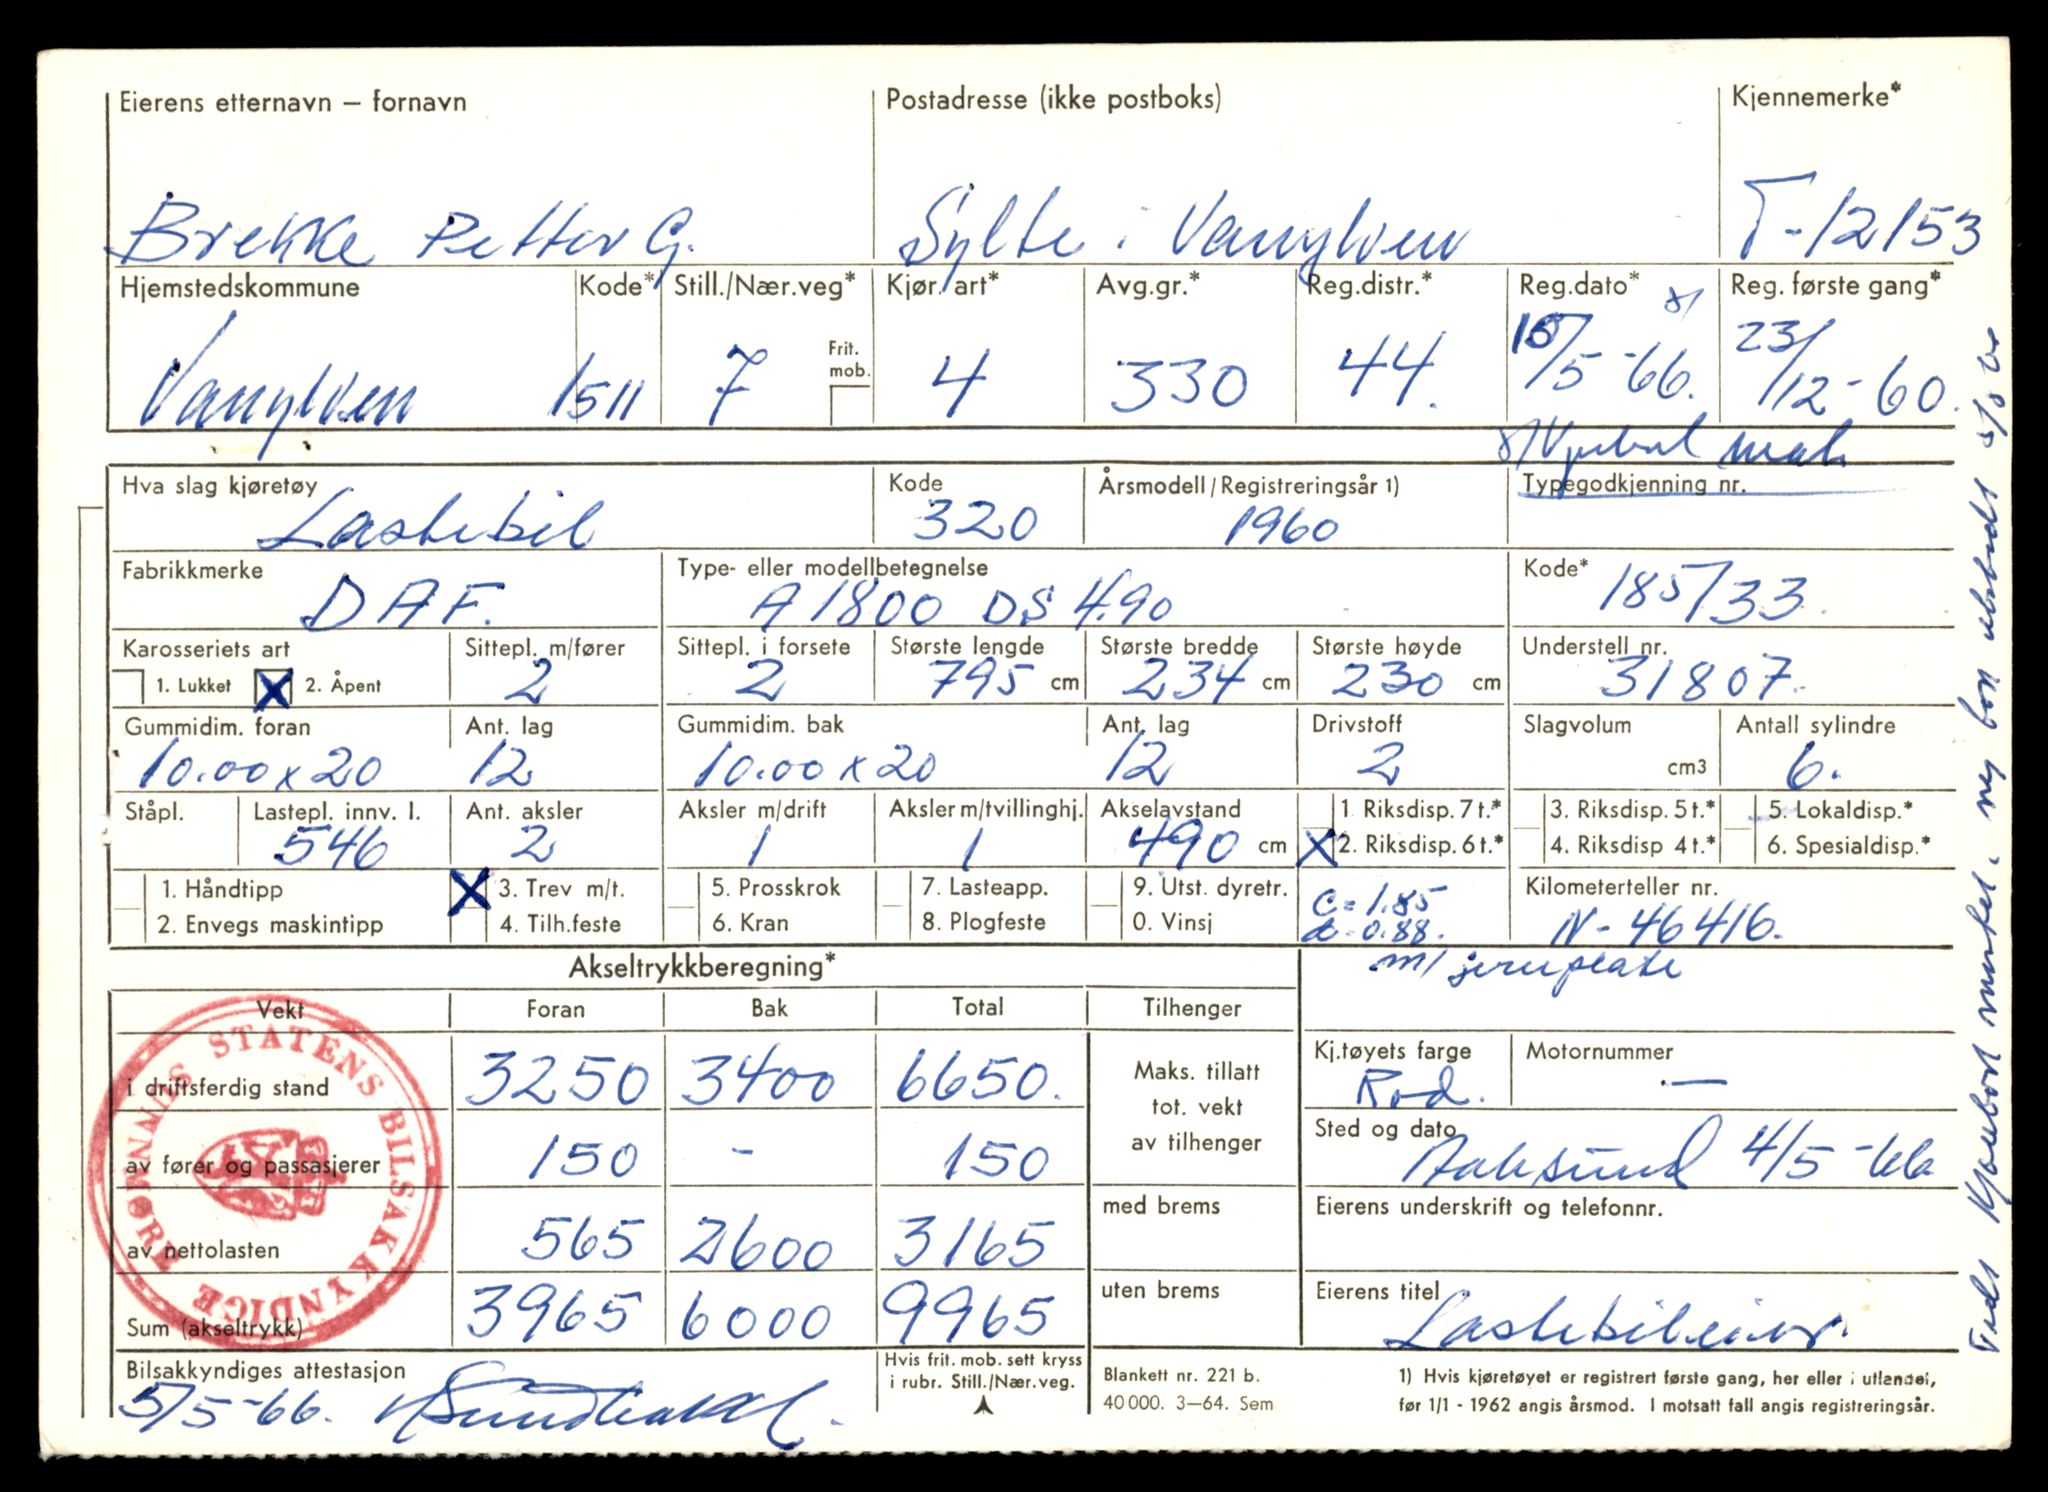 Eierens etternavn – fornavn Postadresse (ikke postboks) Kjennemerke*
Brekke Petter G. Sylte i Vanylven T-12153
Hjemstedskommune Kode* Still./Nær.veg* Kjør. art* Avg.gr.* Reg.distr.* Reg.dato* x/ Reg. første gang*
Vanylven 1511 7 Frit. mob. 4 330 44. /5-66. 23/12-60.
Hva slag kjøretøy Kode Årsmodell/Registreringsår 1) Typegodkjenning nr.
Lastebil 320 1960
Fabrikkmerke Type- eller modellbetegnelse Kode*
DAF. A1800 DS 490 185/33.
Karosseriets art Sittepl. m/fører Sittepl. i forsete Største lengde Største bredde Største høyde Understell nr.
1. Lukket X 2. Åpent 2 2 795 cm 234 cm 230 cm 31807.
Gummidim. foran Ant. lag Gummidim. bak Ant. lag Drivstoff Slagvolum Antall sylindre
10.00x20 12 10.00x20 12 2 cm3 6.
Ståpl. Lastepl. innv. l. Ant. aksler Aksler m/drift Aksler m/tvillinghj. Akselavstand 1 Riksdisp. 7 t.* 3. Riksdisp. 5 t.* 5. Lokaldisp.*
546 2 1 1 490 cm X 2. Riksdisp. 6 t.* 4. Riksdisp 4 t.* 6. Spesialdisp.*
1. Håndtipp X 3. Trev m/t. 5. Prosskrok 7. Lasteapp. 9. Utst. dyretr. C=1.85 Kilometerteller nr.
2. Envegs maskintipp 4. Tilh.feste 6. Kran 8. Plogfeste 0. Vinsj 0.88. N-46416.
Akseltrykkberegning* m/
Vekt Foran Bak Total Tilhenger
i driftsferdig stand 3250 3400 6650. Maks. tillatt tot. vekt av tilhenger Kj.tøyets farge Motornummer
Rød. —
av fører og passasjerer 150 - 150 Sted og dato
4/5-66
av nettolasten 565 2600 3165 med brems Eierens underskrift og telefonnr.
Sum (akseltrykk) 3965 6000 9965 uten brems Eierens titel
Lastebileier.
Bilsakkyndiges attestasjon Hvis frit. mob. sett kryss i rubr. Still./Nær.veg. Blankett nr. 221 b. 1) Hvis kjøretøyet er registrert første gang, her eller i utlandet,
5/5-66. 40 000. 3–64. Sem før 1/1 - 1962 angis årsmod. I motsatt fall angis registreringsår.
STATENS BILSAKKYNDIGE